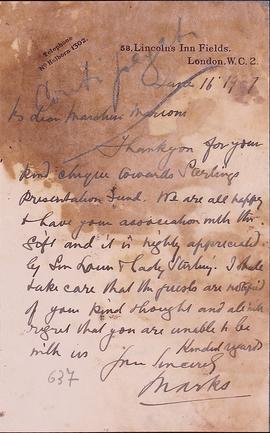 Telephone
No Holborn 1302.
58, Lincoln's Inn Fields.
London. W.C. 2.
June 16 19
My dear Marchese Marconi
Thank you for your
kind cheque towards Sterlings
Presentation Fund. We are all happy
to have your association with the
Gift and it is highly appreciated
by Sir Louis & Lady Sterling. I shall
take care that the guests are notified
of your kind thought and all will
regret that you are unable to be
with us Kindest regards
Yrs Sincerely
Marks
637